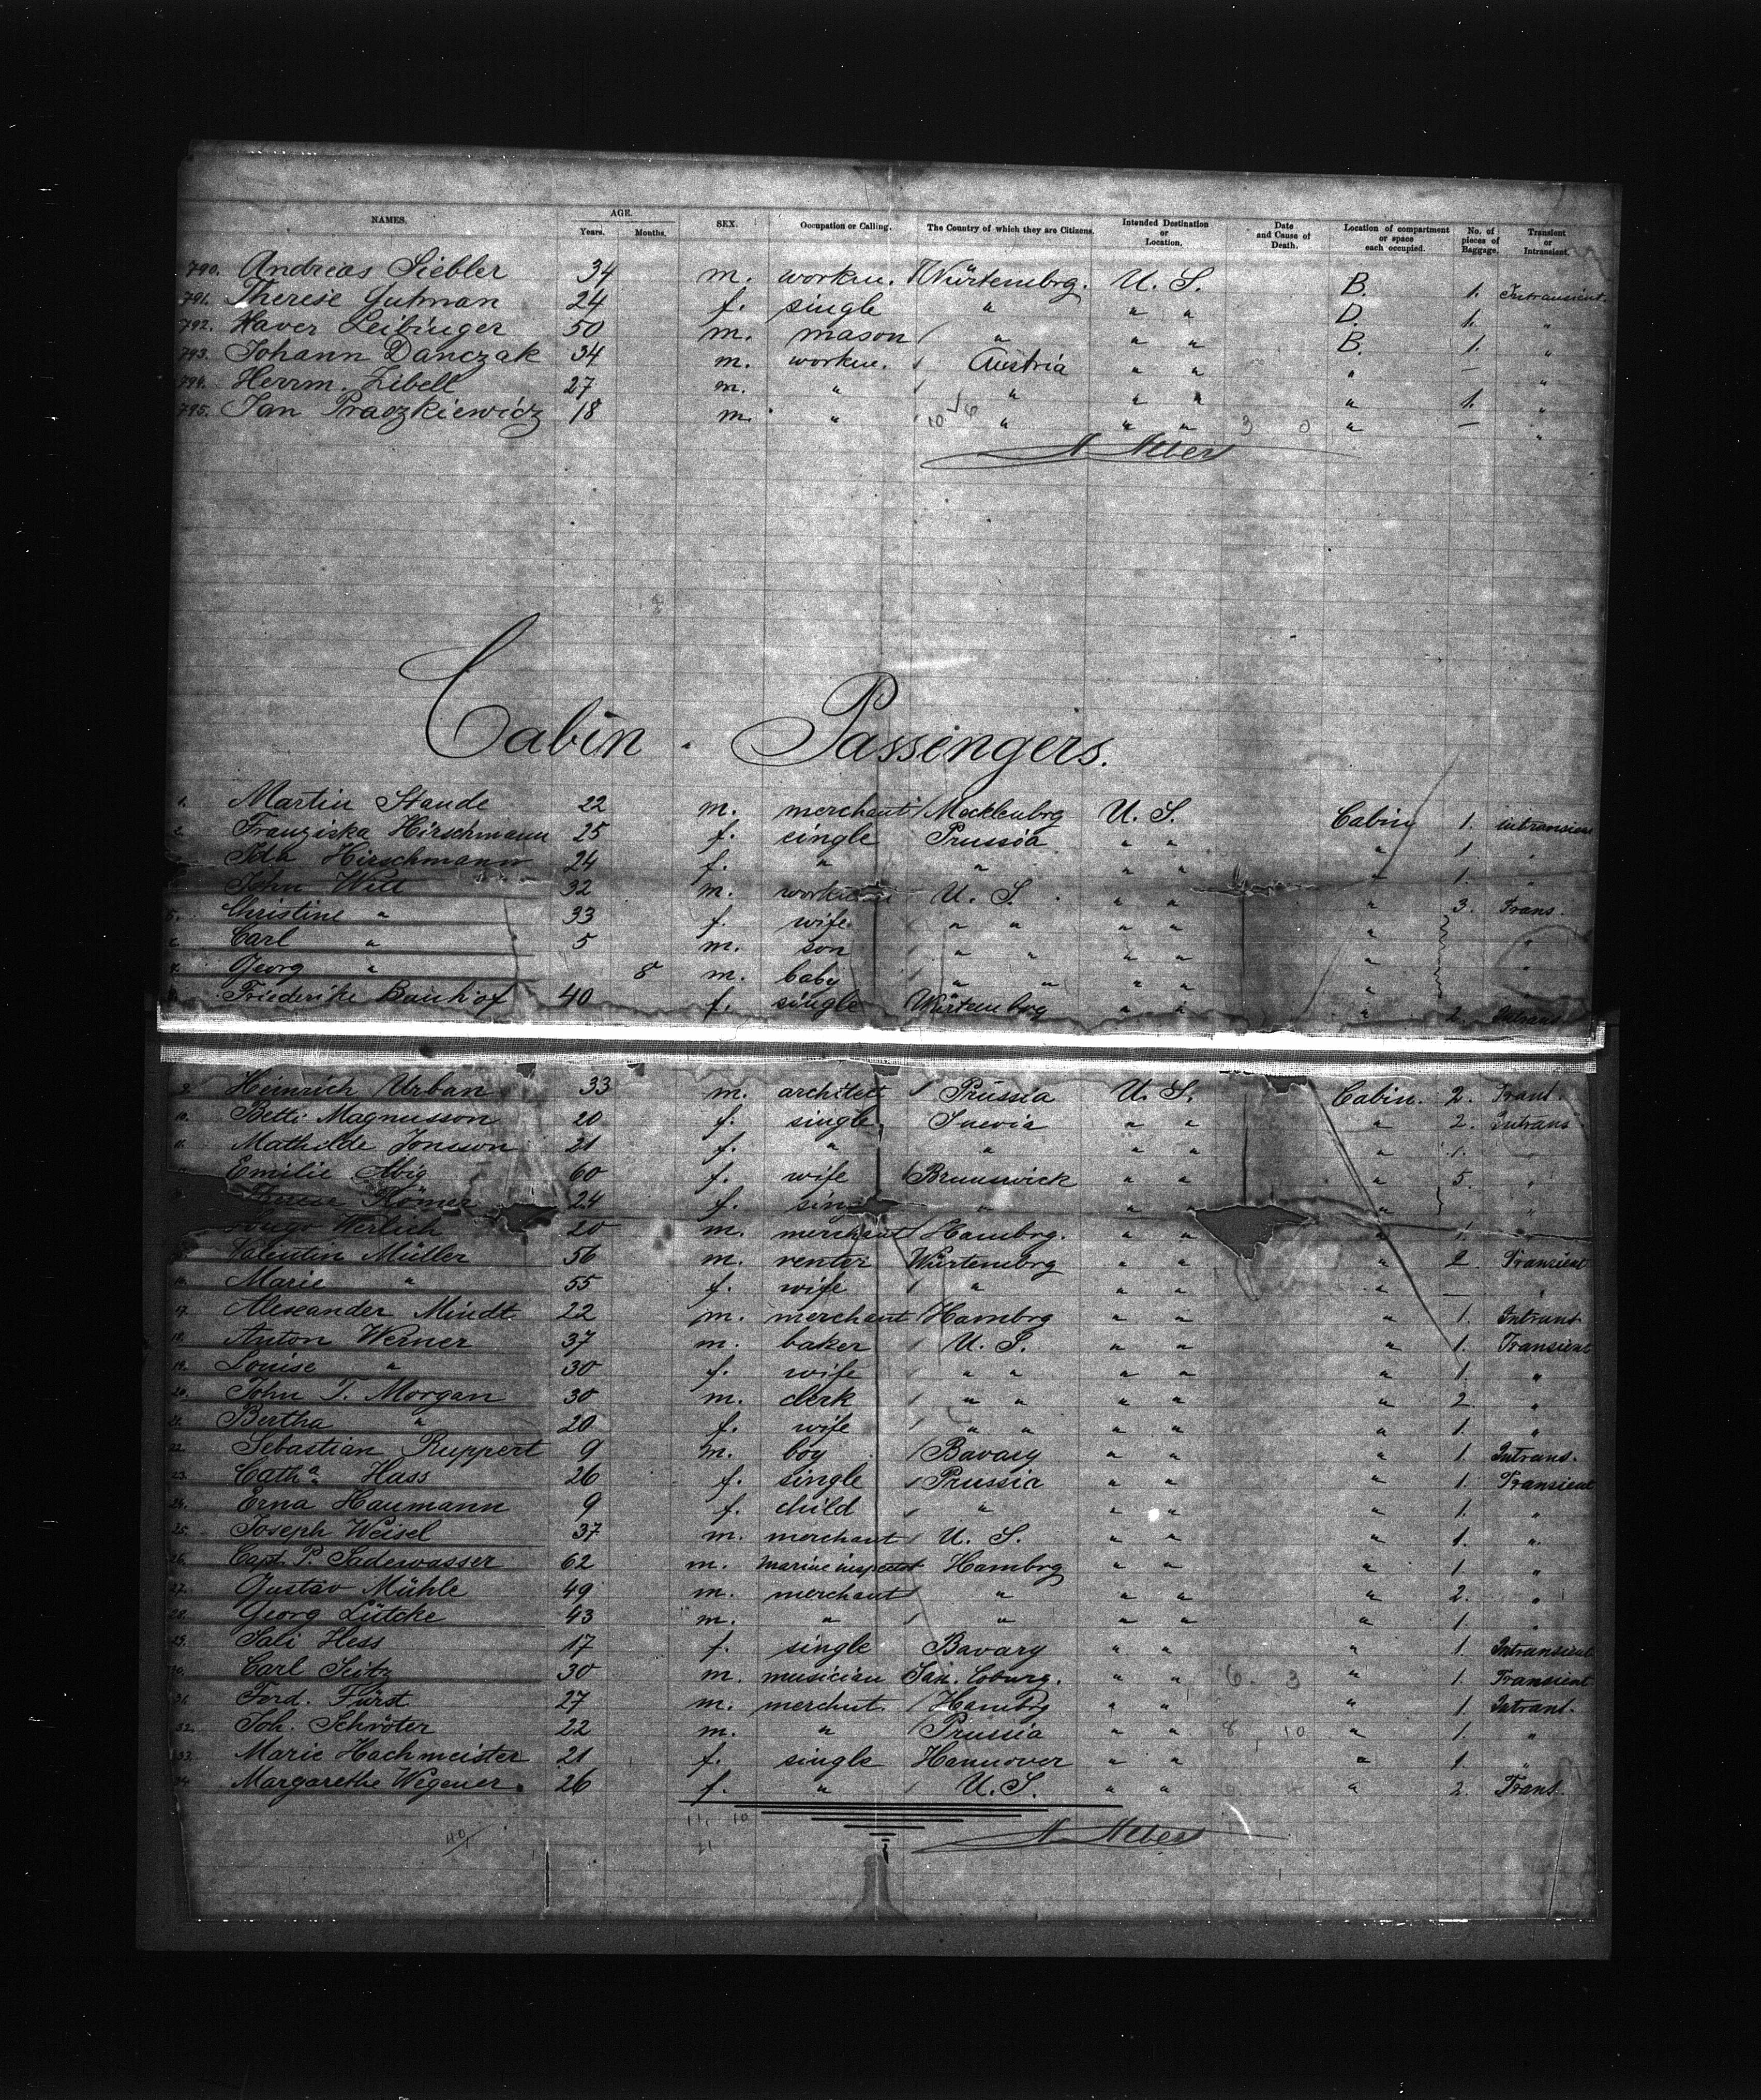 NAMES. AGE. Years. Months. SEX. Occupation or Calling. The Country of which they are Citizens. Intended Destination or Location. Date and Cause of Death. Location of compartment or space each occupied. No. of pieces of Baggage. Transient or Intransient.
790. Andreas Siebler 34 m. workm. Würtembrg. U. S. B. 1. Intransient.
791. Therese Gutman 24 f. single " " " D. 1. "
792. Xaver Leibinger 50 m. mason " " " B. 1. "
793. Johann Danczak 34 m. workm. Austria " " " — "
794. Herrm. Zibell 27 m. " " " " " 1. "
795. Jan Praczkiewicz 18 m. " " " " 3 0 " — "
Cabin - Passengers.
1. Martin Staude 22 m. merchant Mecklenbrg U. S. Cabin 1. intransient
2. Franziska Hirschmann 25 f. single Prussia " " " 1. "
Ida Hirschmann 24 f. " " " " " 1. "
John Witt 32 m. workman U. S. " " " 3. Trans.
5. Christine " 33 f. wife " " " " " "
6. Carl " 5 m. son " " " " " "
7. Georg " 8 m. baby " " " " " "
8. Friederike Bauhof 40 f. single Würtembrg " " " 2. Intrans
9. Heinrich Urban 33 m. architect Prussia U. S. Cabin. 2. Trant.
10. Betti Magnusson 20 f. single Suevia " " " 2. Intrans
11. Mathilde Jonsson 21 f. " " " " " 1. "
Emilie Abig 60 f. wife Brunswick " " " 5. "
Römer 24 f. " " " " "
Hugo Werlich 20 m. merchant Hambrg. " " " 1. "
Valentin Müller 56 m. renter Würtembrg " " " 2 Transient
16. Marie " 55 f. wife " " " " — "
17. Alexander Mindt 22 m. merchant Hambrg " " " 1. Intrant.
18. Anton Werner 37 m. baker U. S. " " " 1. Transient
19. Louise " 30 f. wife " " " " " 1. "
20. John T. Morgan 30 m. clerk " " " " " 2. "
21. Bertha " 20 f. wife " " " " " 1. "
22. Sebastian Ruppert 9 m. boy Bavary " " " 1. Intrans.
23. Catha Hass 26 f. single Prussia " " " 1. Transient
24. Erna Haumann 9 f. child " " " " 1. "
25. Joseph Weisel 37 m. merchant U. S. " " " 1. "
26. Capt. P. Sadewasser 62 m. Marine inspector Hambrg " " " 1. "
27. Gustav Mühle 49 m. merchant " " " " 2. "
28. Georg Lütcke 43 m. " " " " " 1. "
29. Sali Hess 17 f. single Bavary " " " 1. Intransient
30. Carl Seitz 30 m. musician Sax. Coburg. " " 6. 3 " 1. Transient
31. Ferd. Fürst 27 m. merchnt. Hambrg " " " 1. Intrant.
32. Joh. Schröter 22 m. " Prussia " " 8 10 " 1. "
33. Marie Hachmeister 21 f. single Hannover " " " 1. "
34 Margarethe Wegener. 26 f. " U. S. " " " 2. Trans.
11. 10
40
21